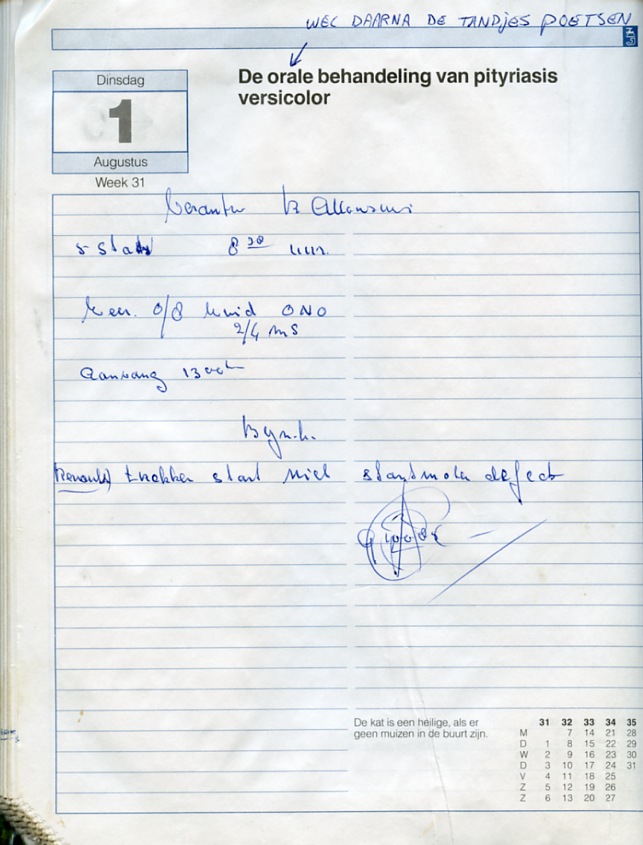 WEL DAARNA DE TANDJES POETSEN
Dinsdag
1
Augustus
Week 31
De orale behandeling van pityriasis
versicolor
8 30 uur.
0/8 ONO
2/4 ms
Aanvang 13 00h
trekker start niet startmotor defect
De kat is een heilige, als er
geen muizen in de buurt zijn.
31 32 33 34 35
M 7 14 21 28
D 1 8 15 22 29
W 2 9 16 23 30
D 3 10 17 24 31
V 4 11 18 25
Z 5 12 19 26
Z 6 13 20 27